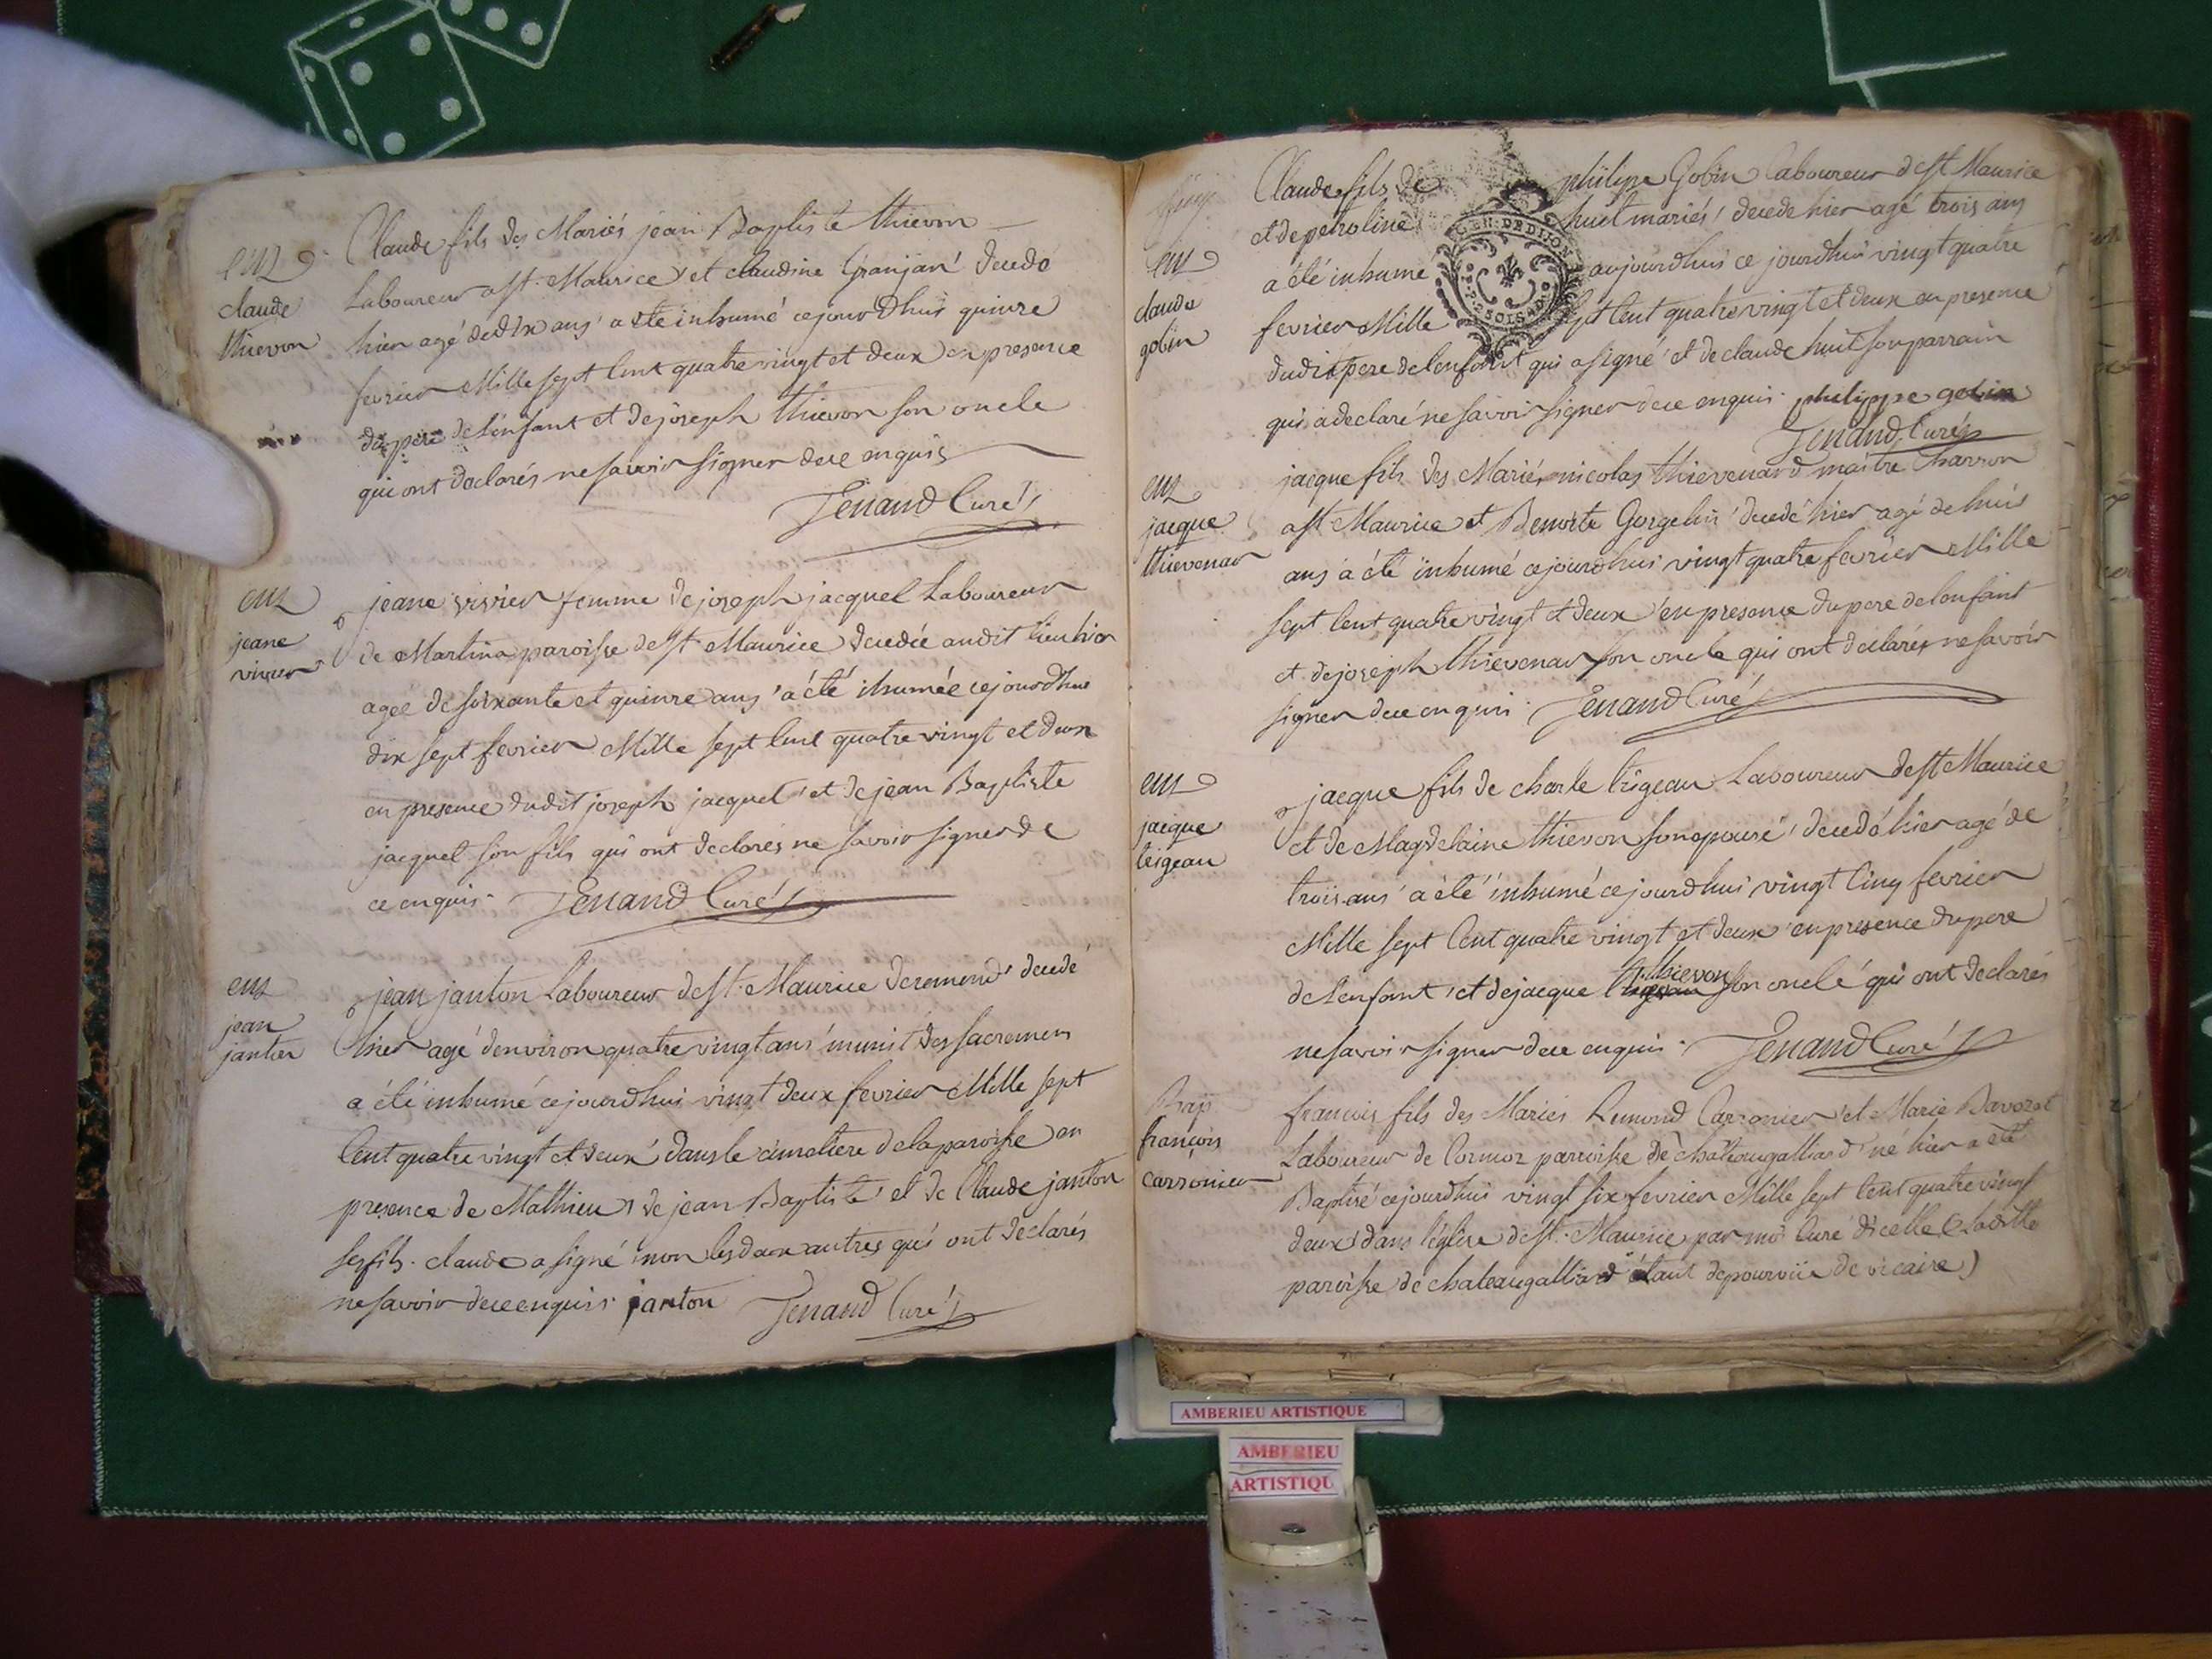 enz
claude
thievon
Claude fils des Mariés jean Baptiste thievon
Laboureur a st. Maurice et claudine Granjan decede
hier agé de dix ans a ete inhumé cejourdhuis quinze
fevrier Mille sept Cent quatre vingt et deux en presence
du pere de l'enfant et de joseph thievon son oncle
qui ont declarés ne savoir signer de ce enquis
Jenand Curé
enz
jeane
vivier
jeane vivier femme de joseph jacquel Laboureur
de Martina paroisse de st Maurice decedée audit lieu hier
agée de soixante et quinze ans a été ihumée cejourdhui
dix sept fevrier Mille sept Cent quatre vingt et deux
en presence dudit joseph jacquel et de jean Baptiste
jacquel son fils qui ont declarés ne savoir signer de
ce enquis. Jenand Curé
enz
jean
janton
jean janton Laboureur de st. Maurice deremend decedé
hier agé denviron quatre vingt ans munit des sacremens
a été inhumé cejourdhui vingt deux fevrier Mille sept
Cent quatre vingt et deux dans le cimetiere de la paroisse en
presence de Mathieu de jean Baptiste et de Claude janton
ses fils. claude a signé non les deux autres qui ont declarés
ne savoir de ce enquis. janton Jenand Curé
enz
claude
gobin
Claude fils de philipe Gobin Laboureur de st Maurice
et de petroline huit mariés decede hier agé trois ans
GEN. DE DIJON
a été inhumé aujourdhui ce jourdhui vingt quatre
2 SOLS 4 D
fevrier Mille sept Cent quatre vingt et deux en presence
dudit pere de lenfant qui a signé et de claude huit son parrain
qui a declaré ne savoir signer de ce enquis. philippe gobin
Jenand Curé
enz
jacque
thievenar
jacque fils des Mariés nicolas thievenard maitre charron
a st Maurice et Benoite Gorgelin decedé hier agé de huit
ans a été inhumé cejourdhui vingt quatre fevrier Mille
sept Cent quatre vingt et deux en presence du pere de lenfant
et de joseph thievenar son oncle qui ont declarés ne savoir
signer de ce enquis. Jenand Curé
enz
jacque
trigeau
jacque fils de charle trigeau Laboureur de st Maurice
et de Magdelaine thievon son epouse decedé hier agé de
trois ans a été inhumé cejourdhui vingt Cinq fevrier
Mille sept Cent quatre vingt et deux en presence du pere
de l'enfant et de jacque trigeau thievon son oncle qui ont declarés
ne savoir signer de ce enquis. Jenand Curé
Bap
françois
carronier
francois fils des Mariés Remond Carronier et Marie Bavozet
Laboureur de Cormoz parroisse de chateaugalliard né hier a été
Baptisé cejourdhui vingt six fevrier Mille sept Cent quatre vingt
deux dans l'eglise de st. Maurice par moi Curé dicelle (Ladite
paroisse de chateaugalliard étant depourvüe de vicaire)
AMBERIEU ARTISTIQUE
AMBERIEU
ARTISTIQU